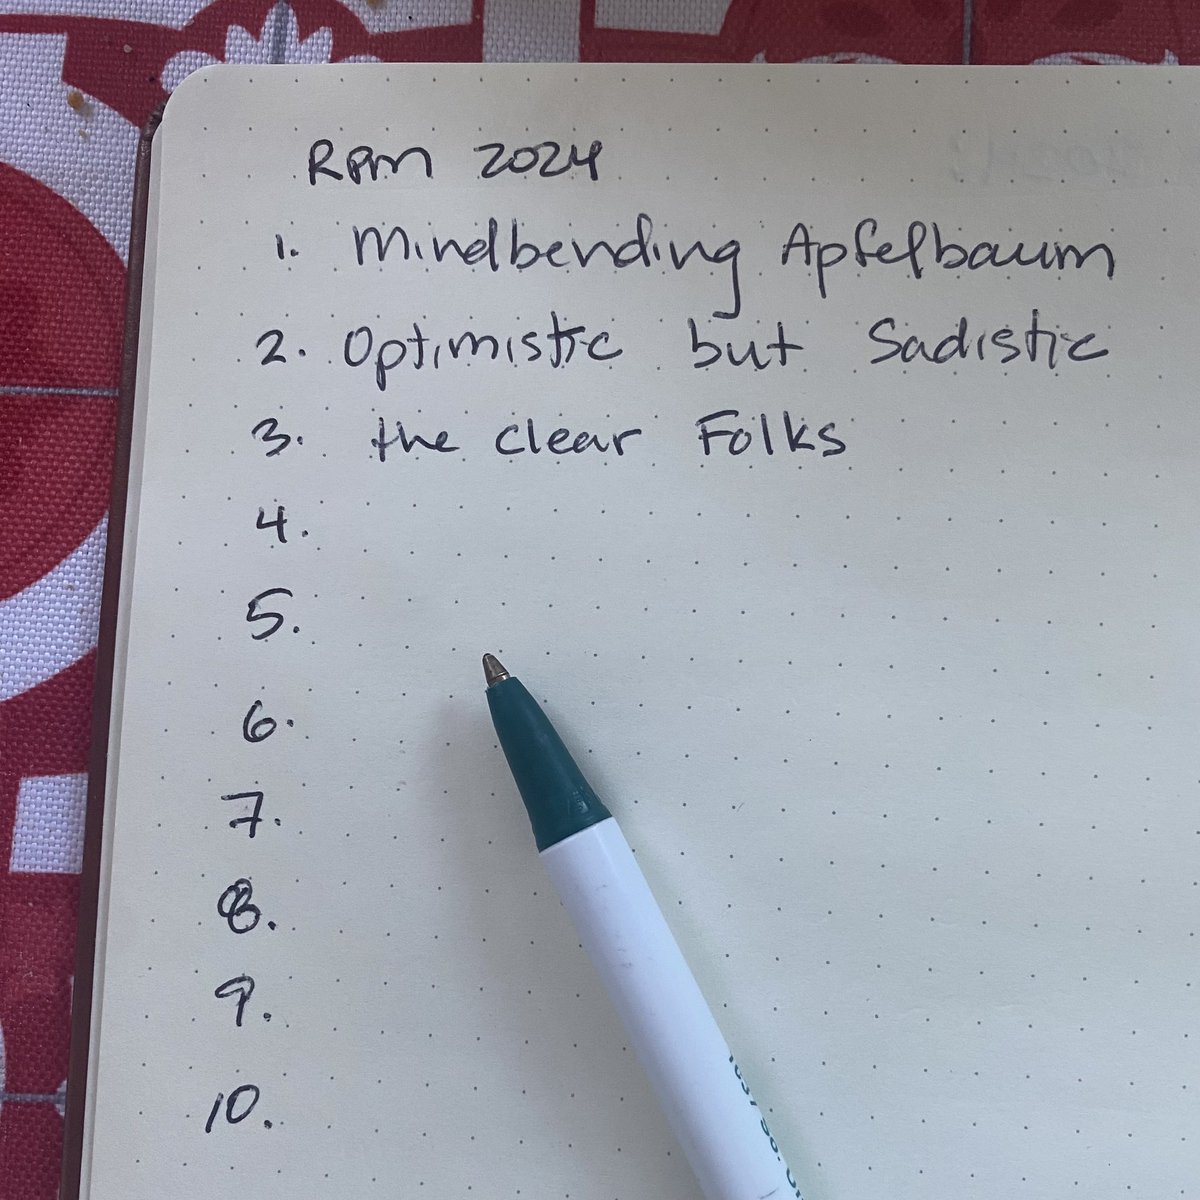 RPM 2024
1. Mindbending Apfelbaum
2. Optimistic but Sadistic
3. the clear Folks
4.
5.
6.
7.
8.
9.
10.